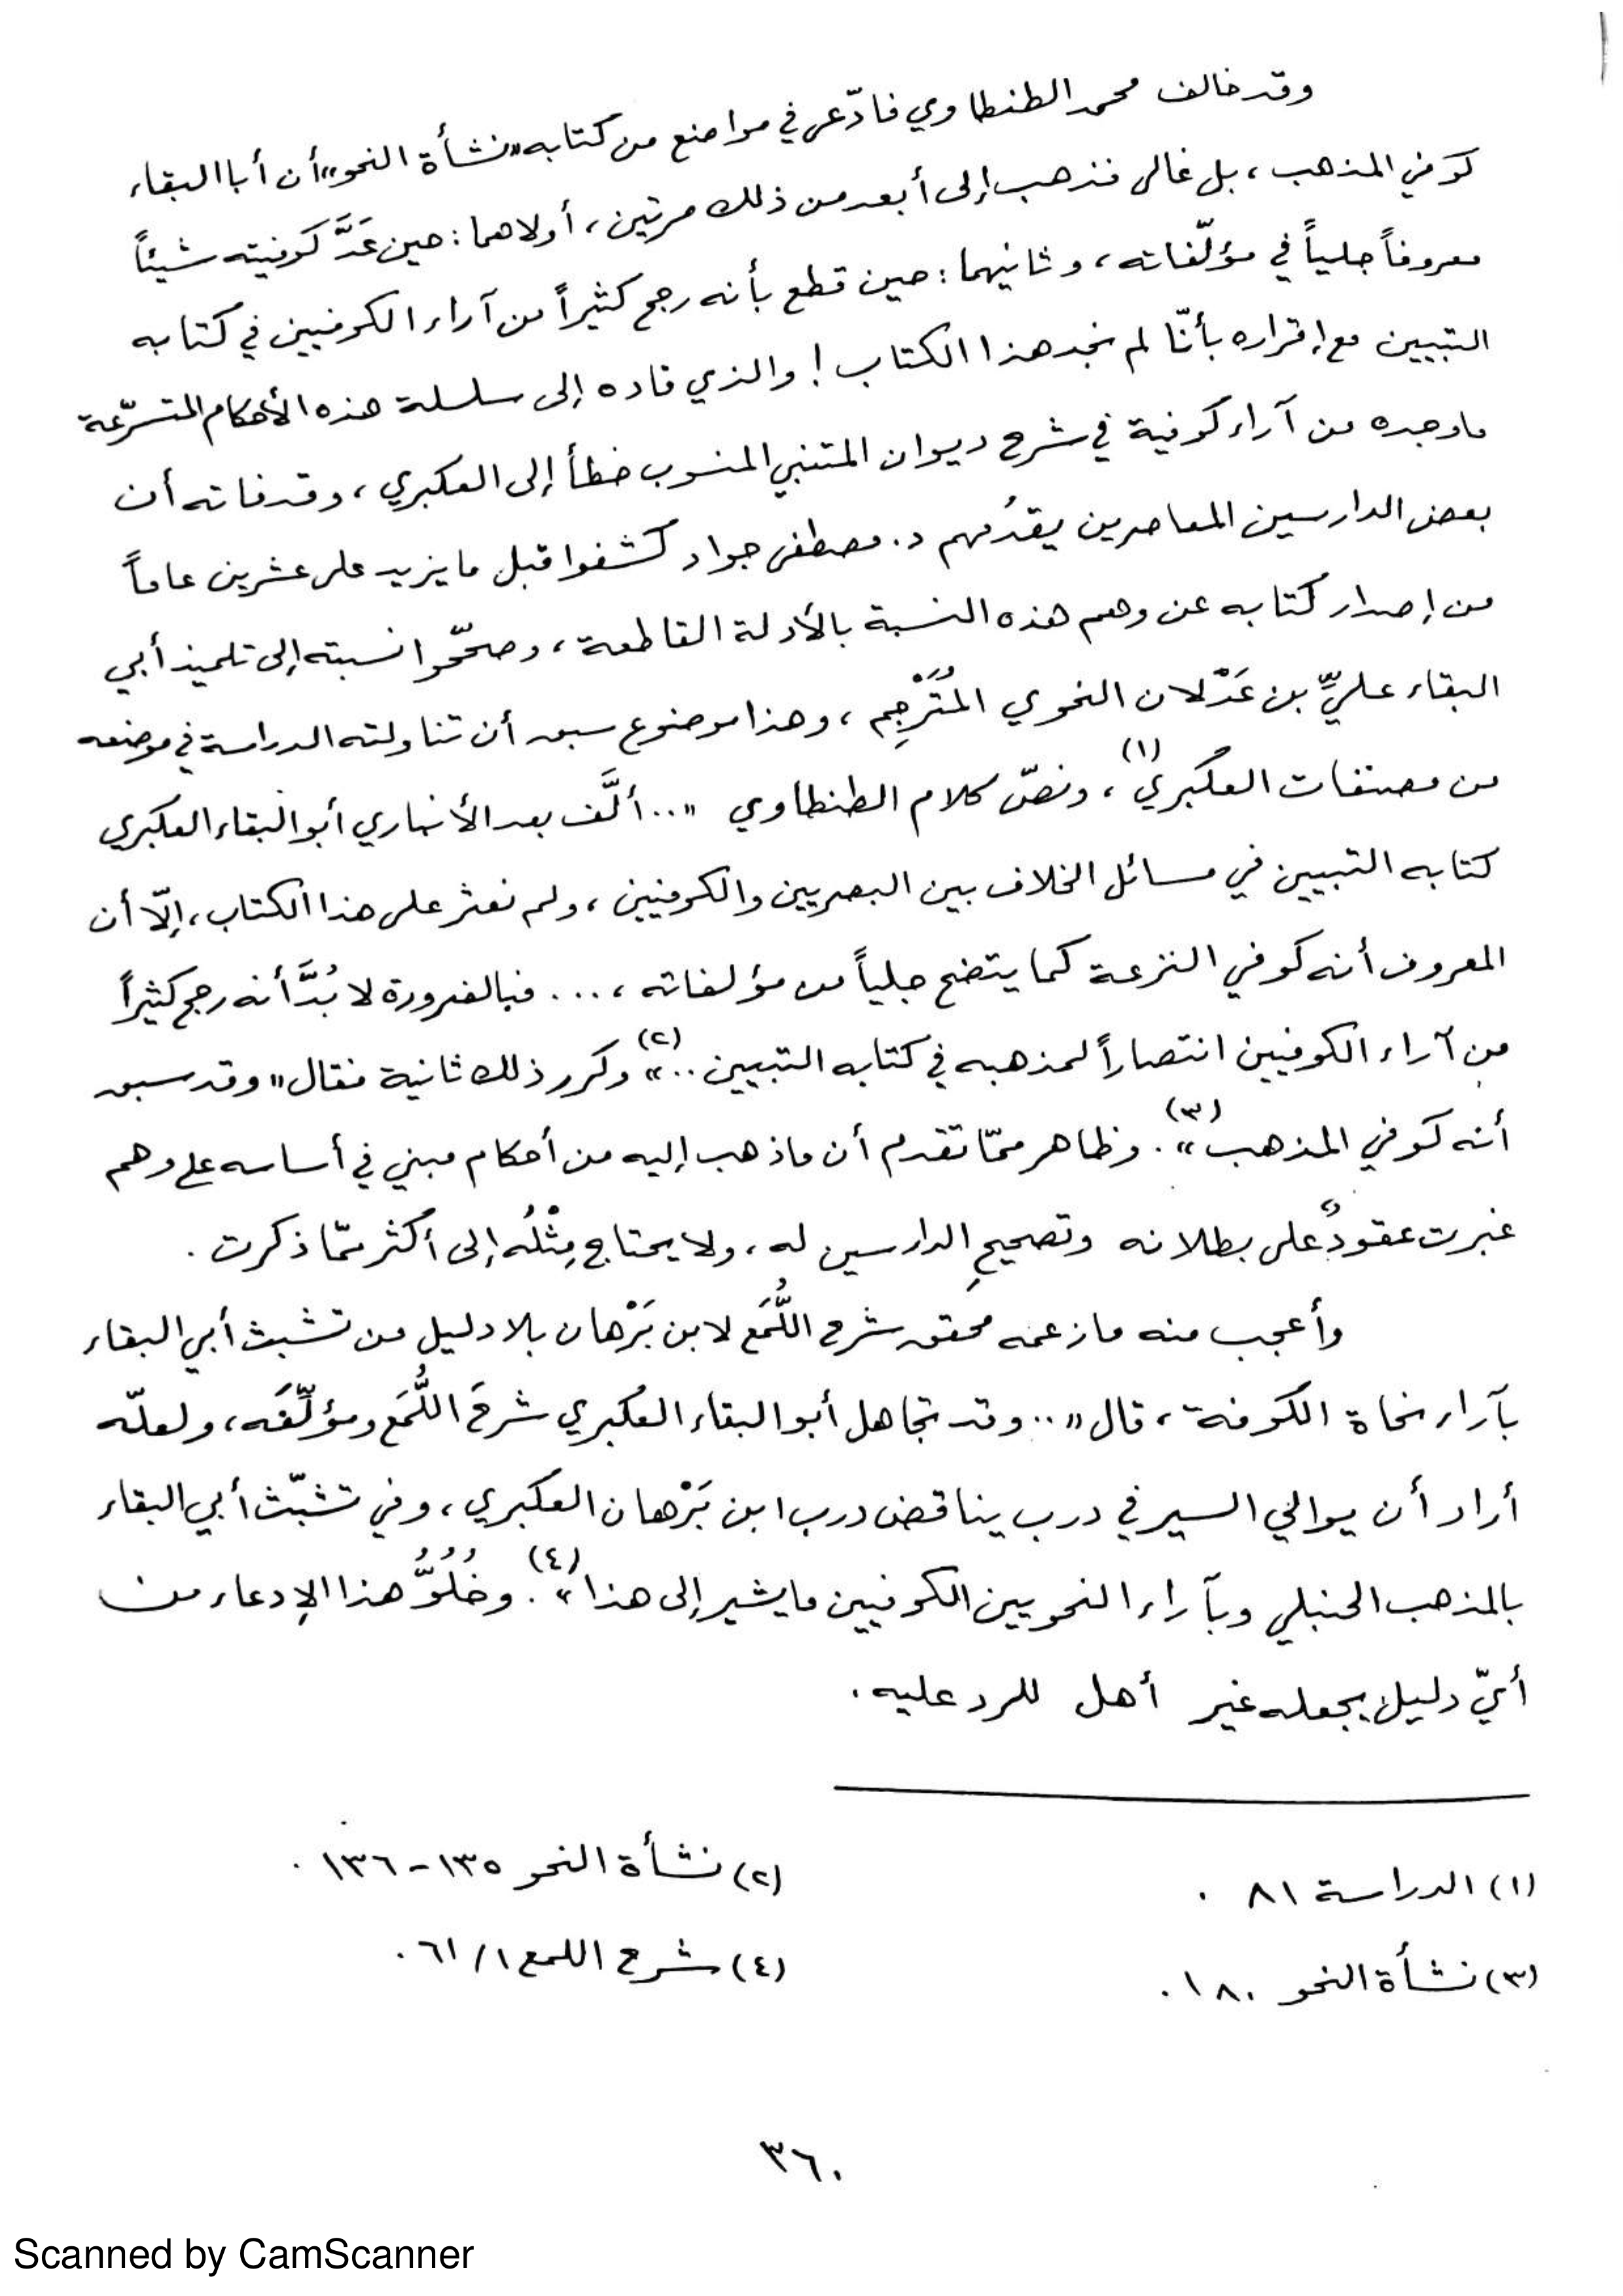 وقد خالف محمد الطنطاوي فادّعى في مواضع من كتابه «نشأة النحو» أن أبا البقاء
كوفي المذهب، بل غالى فذهب إلى أبعد من ذلك مرتين، أولاهما: حين عَدَّ كوفيته شيئاً
معروفاً جلياً في مؤلّفاته، وثانيهما: حين قطع بأنه رجح كثيراً من آراء الكوفيين في كتابه
التبيين مع إقراره بأنّا لم نجد هذا الكتاب! والذي قاده إلى سلسلة هذه الأحكام المتسرّعة
ما وجده من آراء كوفية في شرح ديوان المتنبي المنسوب خطأ إلى العكبري، وقد فاته أن
بعض الدارسين المعاصرين يقدُمهم د. مصطفى جواد كشفوا قبل ما يزيد على عشرين عاماً
من إصدار كتابه عن وهم هذه النسبة بالأدلة القاطعة، وصحّحوا نسبته إلى تلميذ أبي
البقاء عليِّ بن عَدْلان النحوي المُتَرْجِم، وهذا موضوع سبق أن تناولته الدراسة في موضعه
من مصنفات العُكبري(١)، ونصّ كلام الطنطاوي «.. ألَّف بعد الأنباري أبو البقاء العكبري
كتابه التبيين في مسائل الخلاف بين البصريين والكوفيين، ولم نعثر على هذا الكتاب، إلّا أن
المعروف أنه كوفي النزعة كما يتضح جلياً من مؤلفاته، ... فبالضرورة لا بُدَّ أنه رجح كثيراً
من آراء الكوفيين انتصاراً لمذهبه في كتابه التبيين ..»(٢) وكرر ذلك ثانية فقال «وقد سبق
أنه كوفي المذهب»(٣). وظاهر ممّا تقدم أن ما ذهب إليه من أحكام مبني في أساسه على وهم
غبرت عقودٌ على بطلانه وتصحيحِ الدارسين له، ولا يحتاج مِثْلُه إلى أكثر ممّا ذكرت.
وأعجب منه ما زعمه محقق شرح اللُّمَع لابن بَرْهان بلا دليل من تشبث أبي البقاء
بآراء نحاة الكوفة، قال «.. وقد تجاهل أبو البقاء العُكبري شرحَ اللُّمَع ومؤلِّفَه، ولعلّه
أراد أن يوالي السير في درب يناقض درب ابن بَرْهان العكبري، وفي تشبّث أبي البقاء
بالمذهب الحنبلي وبآراء النحويين الكوفيين ما يشير إلى هذا»(٤). وخُلُوُّ هذا الإدعاء من
أيّ دليل يجعله غير أهل للرد عليه.
(١) الدراسة ٨١.
(٢) نشأة النحو ١٣٥-١٣٦.
(٣) نشأة النحو ١٨٠.
(٤) شرح اللمع ١/٦١.
٣٦٠
Scanned by CamScanner